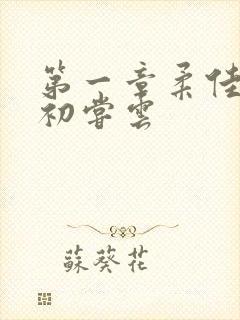 第一章柔佳
初嘗雲
蘇葵花